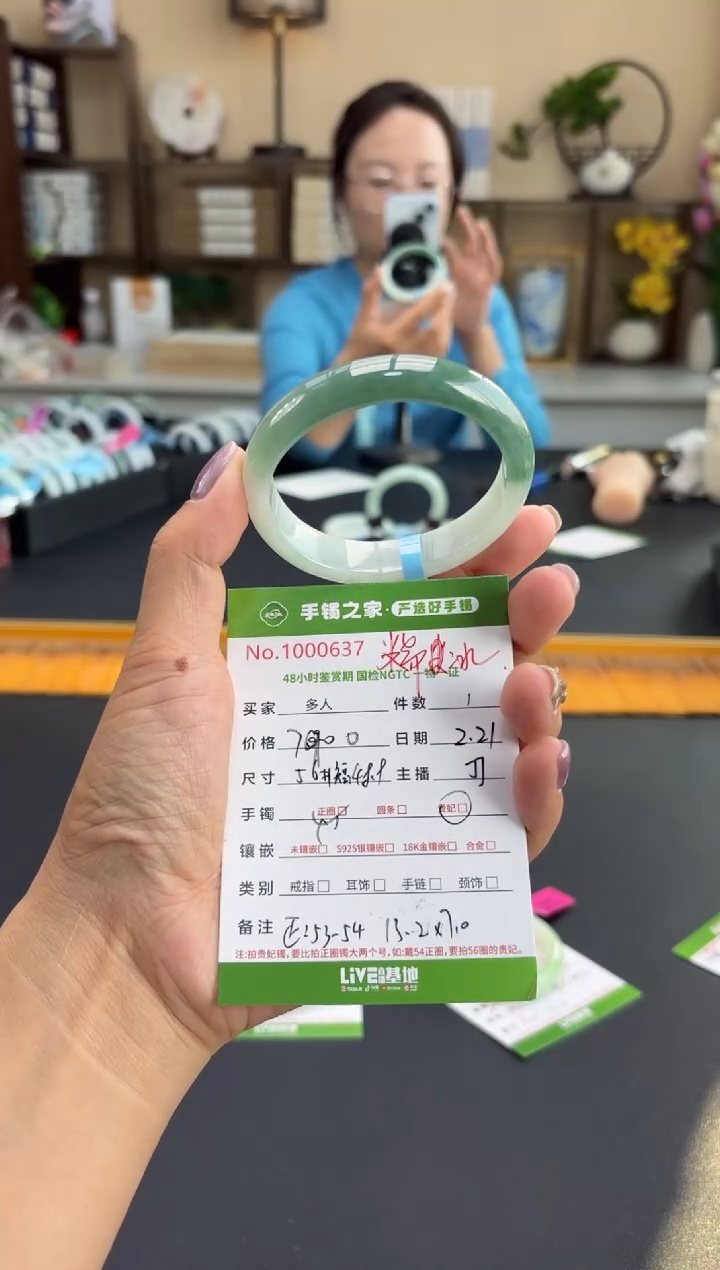 手镯之家·严选好手镯
No.1000637
48小时鉴赏期 国检NGTC一物一证
买家 多人 件数 1
价格 日期 2.21
尺寸 56 主播
手镯 正圈 圆条 贵妃
镶嵌 未镶嵌 S925银镶嵌 18K金镶嵌 合金
类别 戒指 耳饰 手链 颈饰
备注 正:53-54 13.2x7.0
注:拍贵妃镯,要比拍正圈镯大两个号,如:戴54正圈,要拍56圈的贵妃。
LiVE基地
LiVE基地